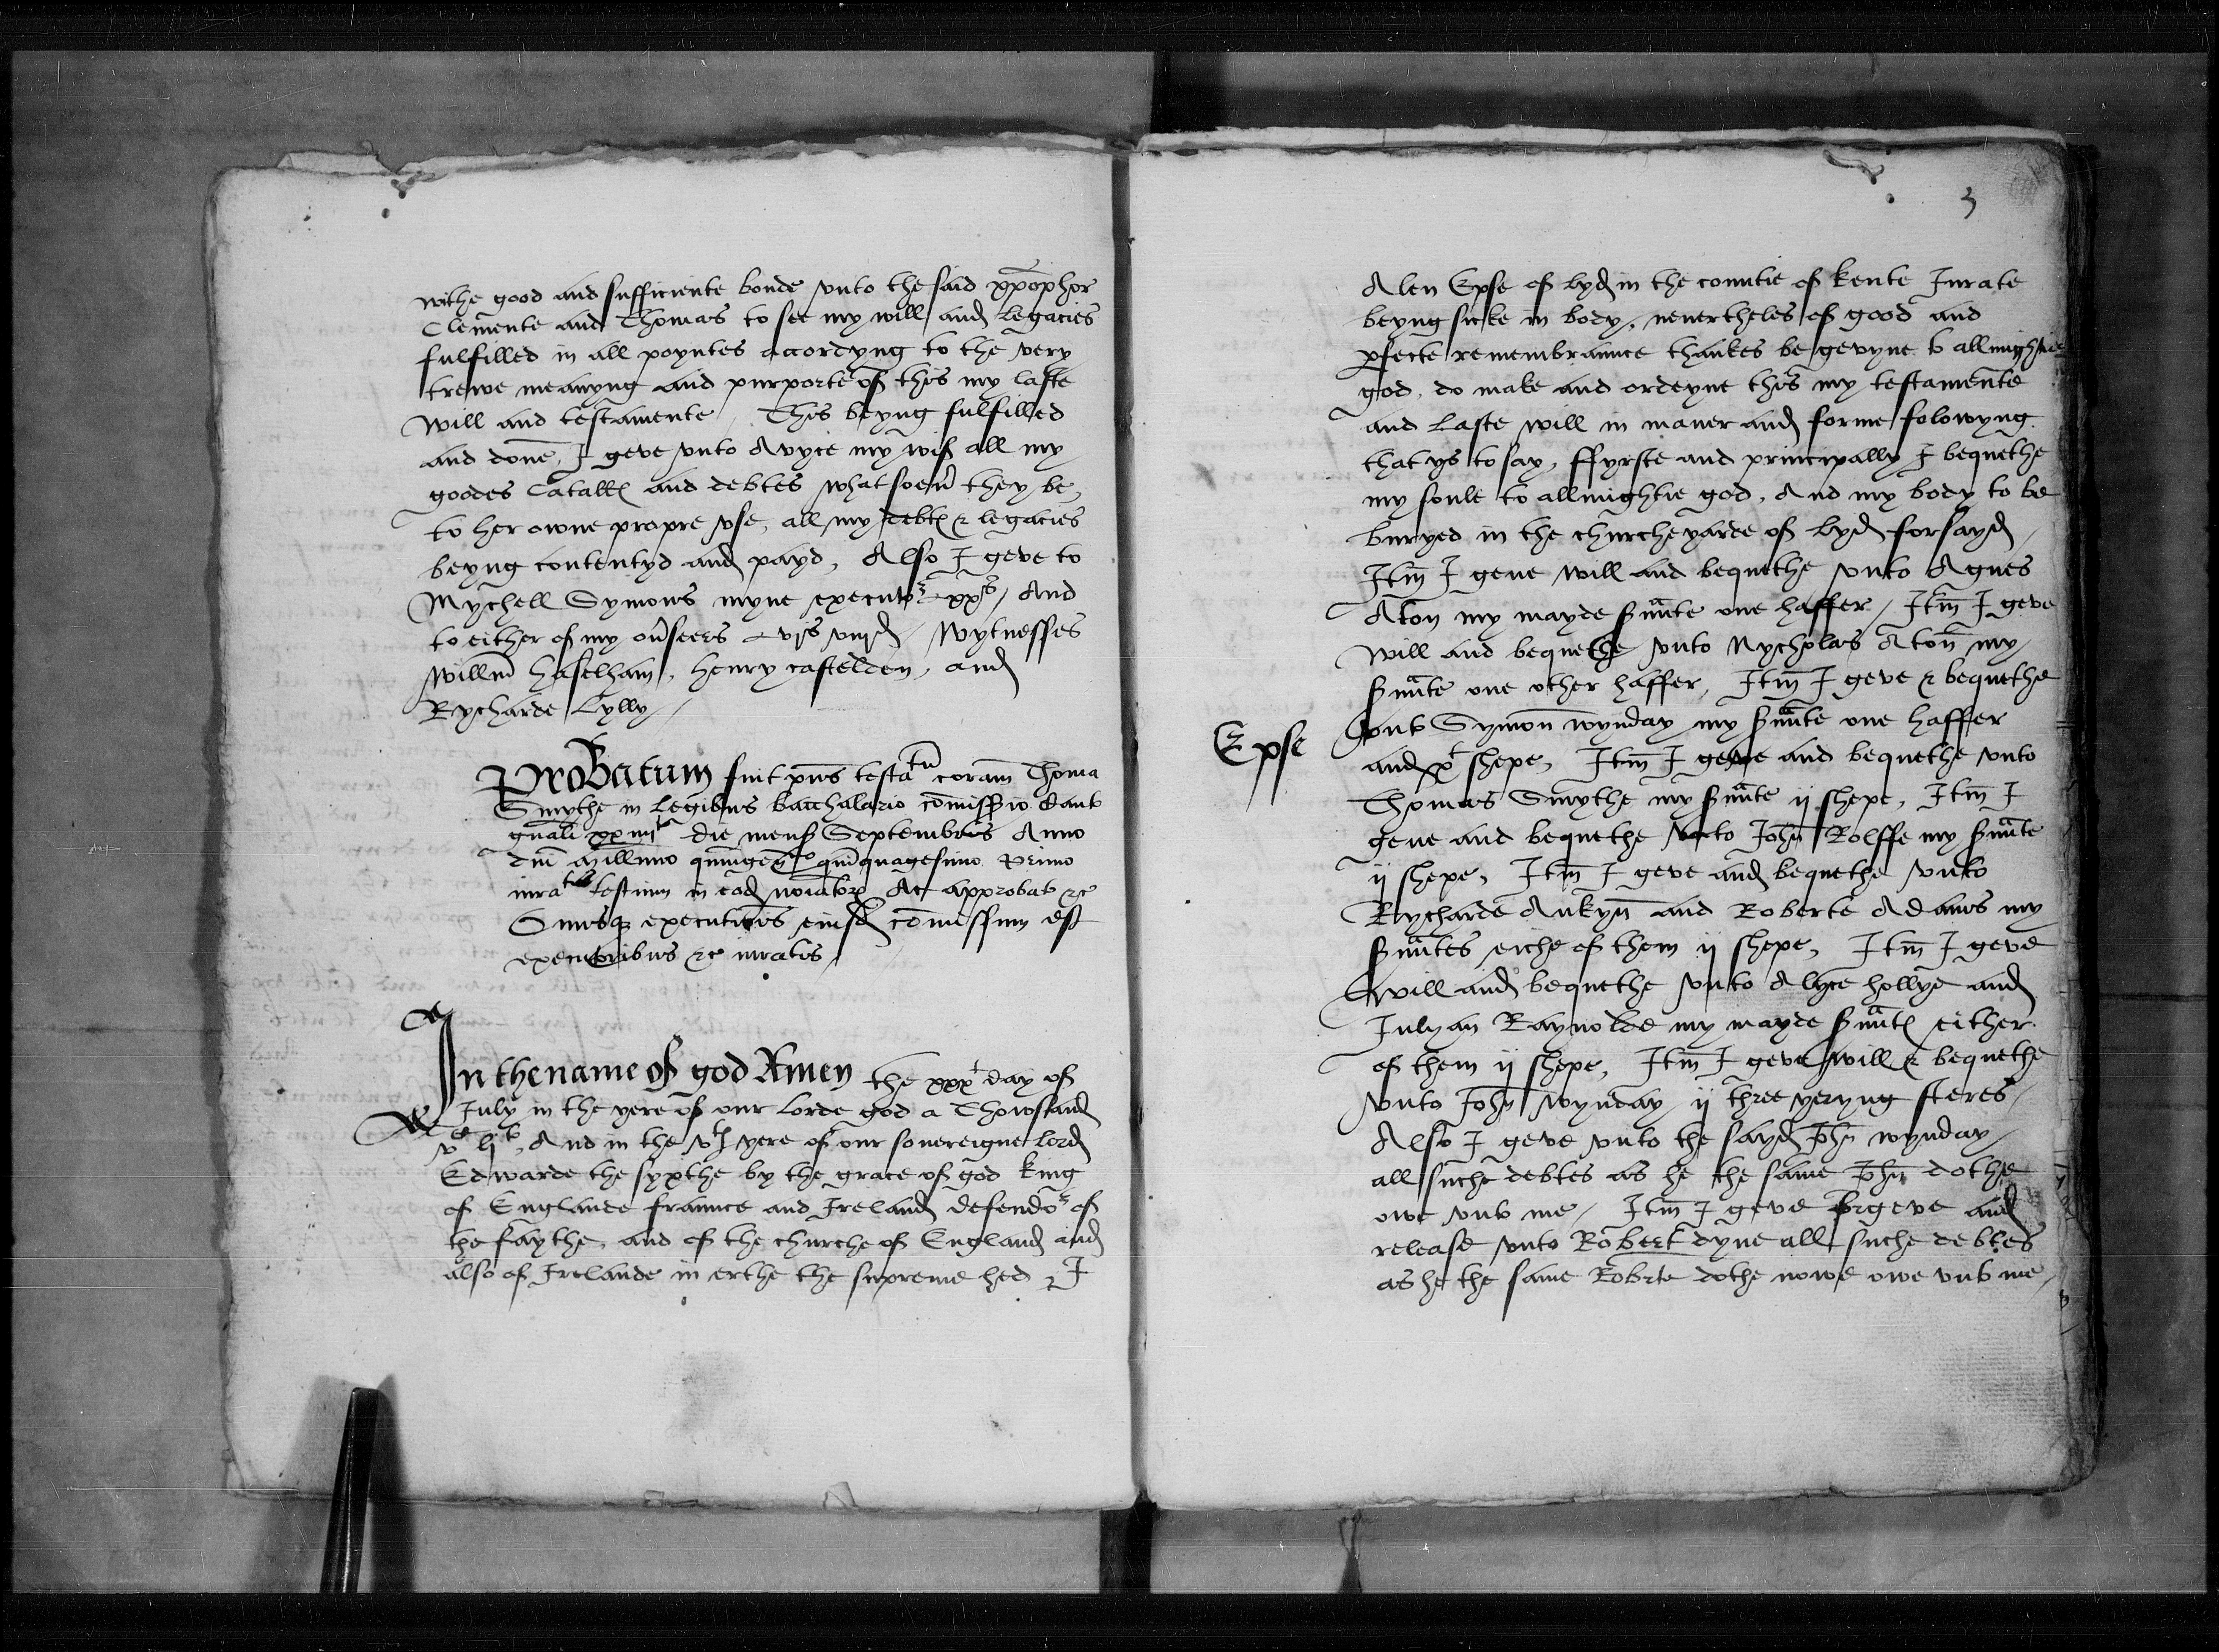 withe good and sufficiente bonde vnto the said xpopher
Clemente and Thomas to see my will and legacies
fulfilled in all poyntes accordyng to the very
trewe meanyng and purporte of this my laste
will and testamente / This beyng fulfilled
and done, I geve vnto Avyce my wif all my
goodes Catalls and debtes whatsoeuer they be,
to her owne propre vse, all my debts & legacies
beyng contentyd and payd, Also I geve to
Mychell Symons myne executor xxs / And
to either of my ouseers vjs viijd / Wytnesses
Willm haselham, henry castelden, and
Rycharde Lylly /
Probatum fuit pns testatu coram Thoma
Smythe in legibus bacchalario comissrio
gnali xxiiijto die mens Septembris Anno
dni millimo quingeno quinquagesimo primo
iurat testium in eod noiator Ac approbat &c
Onusq executionis eiusd comissum est
executoribus &c iuratis /
In the name of god Amen the xxxt day of
July in the yere of our lorde god a Thowsand
vc ljto, And in the vth yere of our souereigne lord
Edwarde the syxthe by the grace of god king
of Englande fraunce and Ireland defendor of
the faythe, and of the churche of England and
also of Irelande in erthe the supreme hed, I
3
Alen Epse of lyd in the countie of kente Jurate
beyng sicke in body, neuertheles of good and
pfecte remembraunce thankes be gevyne to allmightie
god, do make and ordeyne this my testamente
and laste will in maner and forme folowyng
that ys to say, ffyrste and principally I bequethe
my soule to allmightie god, And my body to be
buryed in the churcheyarde of lyd forsayd /
Itm I geue will and bequethe vnto Agnes
Aton my mayde suante one haffer / Itm I geve
will and bequethe vnto Nycholas Aton my
suante one other haffer, Itm I geve & bequethe
vnto Symon wynday my suante one haffer
Epse
and xt shepe, Itm I geve and bequethe vnto
Thomas Smythe my suante ij shepe, Itm I
geue and bequethe vnto John Rolffe my suante
ij shepe, Itm I geve and bequethe vnto
Rycharde Ankyn and Roberte Adams my
suantes eiche of them ij shepe, Itm I geve
will and bequethe vnto Alyce hollye and
Julyan Raynolde my mayde suants either
of them ij shepe, Itm I geve will & bequethe
vnto John Wynday ij three yeryng steres /
Also I geve vnto the sayd John wynday
all suche debtes as he the same John dothe
owe vnto me / Itm I geve forgeve and
release vnto Robert dyne all suche debtes
as he the same Robrte dothe nowe owe vnto me /